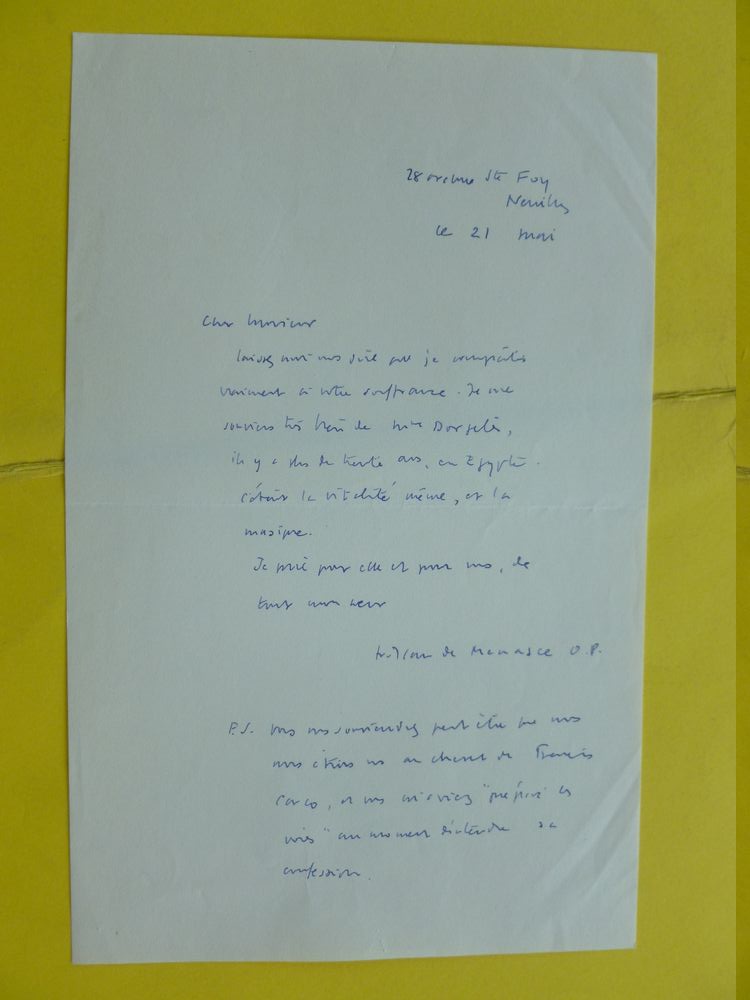 28 avenue Ste Foy
Neuilly
le 21 mai
Cher Monsieur
laissez moi vous dire que je compatis
vraiment à votre souffrance. Je me
souviens très bien de Mme Dorgelès,
il y a plus de trente ans, en Egypte.
C'était la vitalité même, et la
musique.
Je prie pour elle et pour vous, de
tout mon coeur
fr. Jean de Menasce O.P.
P.S. Vous vous souviendrez peut être que nous
nous étions vus au chevet de Francis
Carco, et vous m'aviez "préparé les
voies" au moment d'entendre sa
confession.